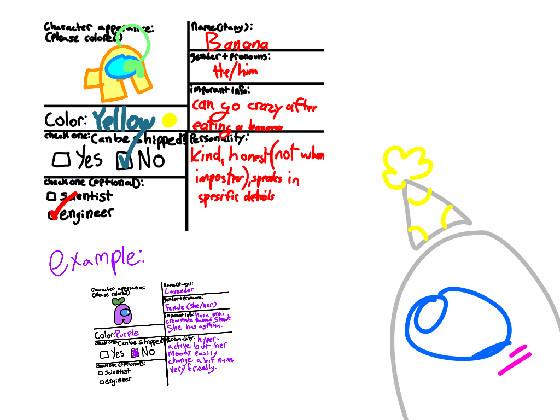 Character appearance:
(Please color)
Name (if any):
Banana
Gender + Pronouns:
He/him
important info:
can go crazy after
eating a banana
Color: Yellow
check one: Can be shipped?
Yes No
Personality:
kind, honest (not when
imposter), speaks in
spesific details
check one (optional):
scientist
engineer
example:
Character appearance:
(Please color)
Lavender
Female (she/her)
She has asthma.
Color: Purple
Can be shipped?
Yes No
hyper-
active but her
moods easily
change a bit
very friendly.
scientist
engineer